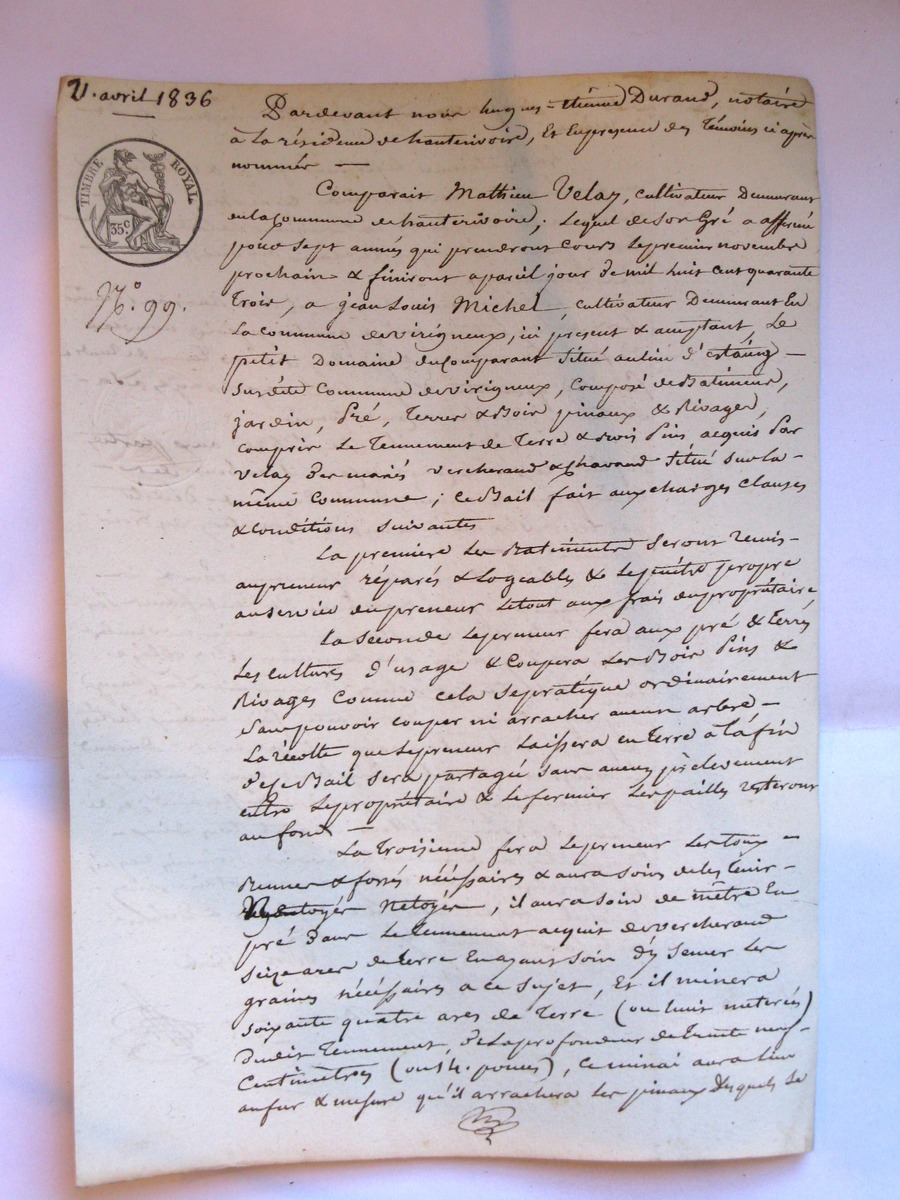 21. avril 1836
TIMBRE ROYAL
35 c.
N.º 99.
Pardevant nous hugues-étienne Durand, notaire
à la résidence de hauterivoire, et en presence des témoins ci après
nommés —
Comparait Mathieu Velay, cultivateur Demeurant
en la commune de hauterivoire; lequel de son Gré a affermé
pour sept années qui prendront cours le premier novembre
prochain & finiront a pareil jour de mil huit cent quarante
trois, a jean Louis Michel, cultivateur Demeurant En
La commune de virigneux, ici present & acceptant, Le
petit Domaine du comparant situé au lieu d'estaing —
susdite commune de virigneux, composé de Batiments,
jardin, Pré, Terres & Bois pinaux & Rivages,
compris Le Tennement de Terre & bois Pins, acquis par
Velay des mariés vercherand & chavand situé sur la —
même commune; ce Bail fait aux charges clauses
& conditions suivantes
La premiere les Batiments seront remis —
au preneur réparés & logeables & le propre
au service du preneur le tout aux frais du propriétaire
La seconde le preneur fera aux pré & terres
les cultures d'usage & coupera les Bois Pins &
Rivages comme cela se pratique ordinairement
sans pouvoir couper ni arracher aucun arbre —
La récolte que le preneur laissera en terre à la fin
de ce Bail sera partagée sans aucun prèlevement
entre le propriétaire & le fermier les pailles resteront
au fond —
La troisieme fera le preneur les
& fossés nécessaires & aura soin de les tenir —
Netoyés, il aura soin de mêtre En
pré dans le tennement acquit de vercherand
seize ares de terre En ayant soin d'y semer les
grains nécessaires a ce sujet, Et il minera
soixante quatre ares de Terre (ou huit meterées)
dudit tennement, de la profondeur de trente neuf
centimètres (ou 14. pouces), ce minai aura lieu
au fur & mesure qu'il arrachera les pinaux desquels le